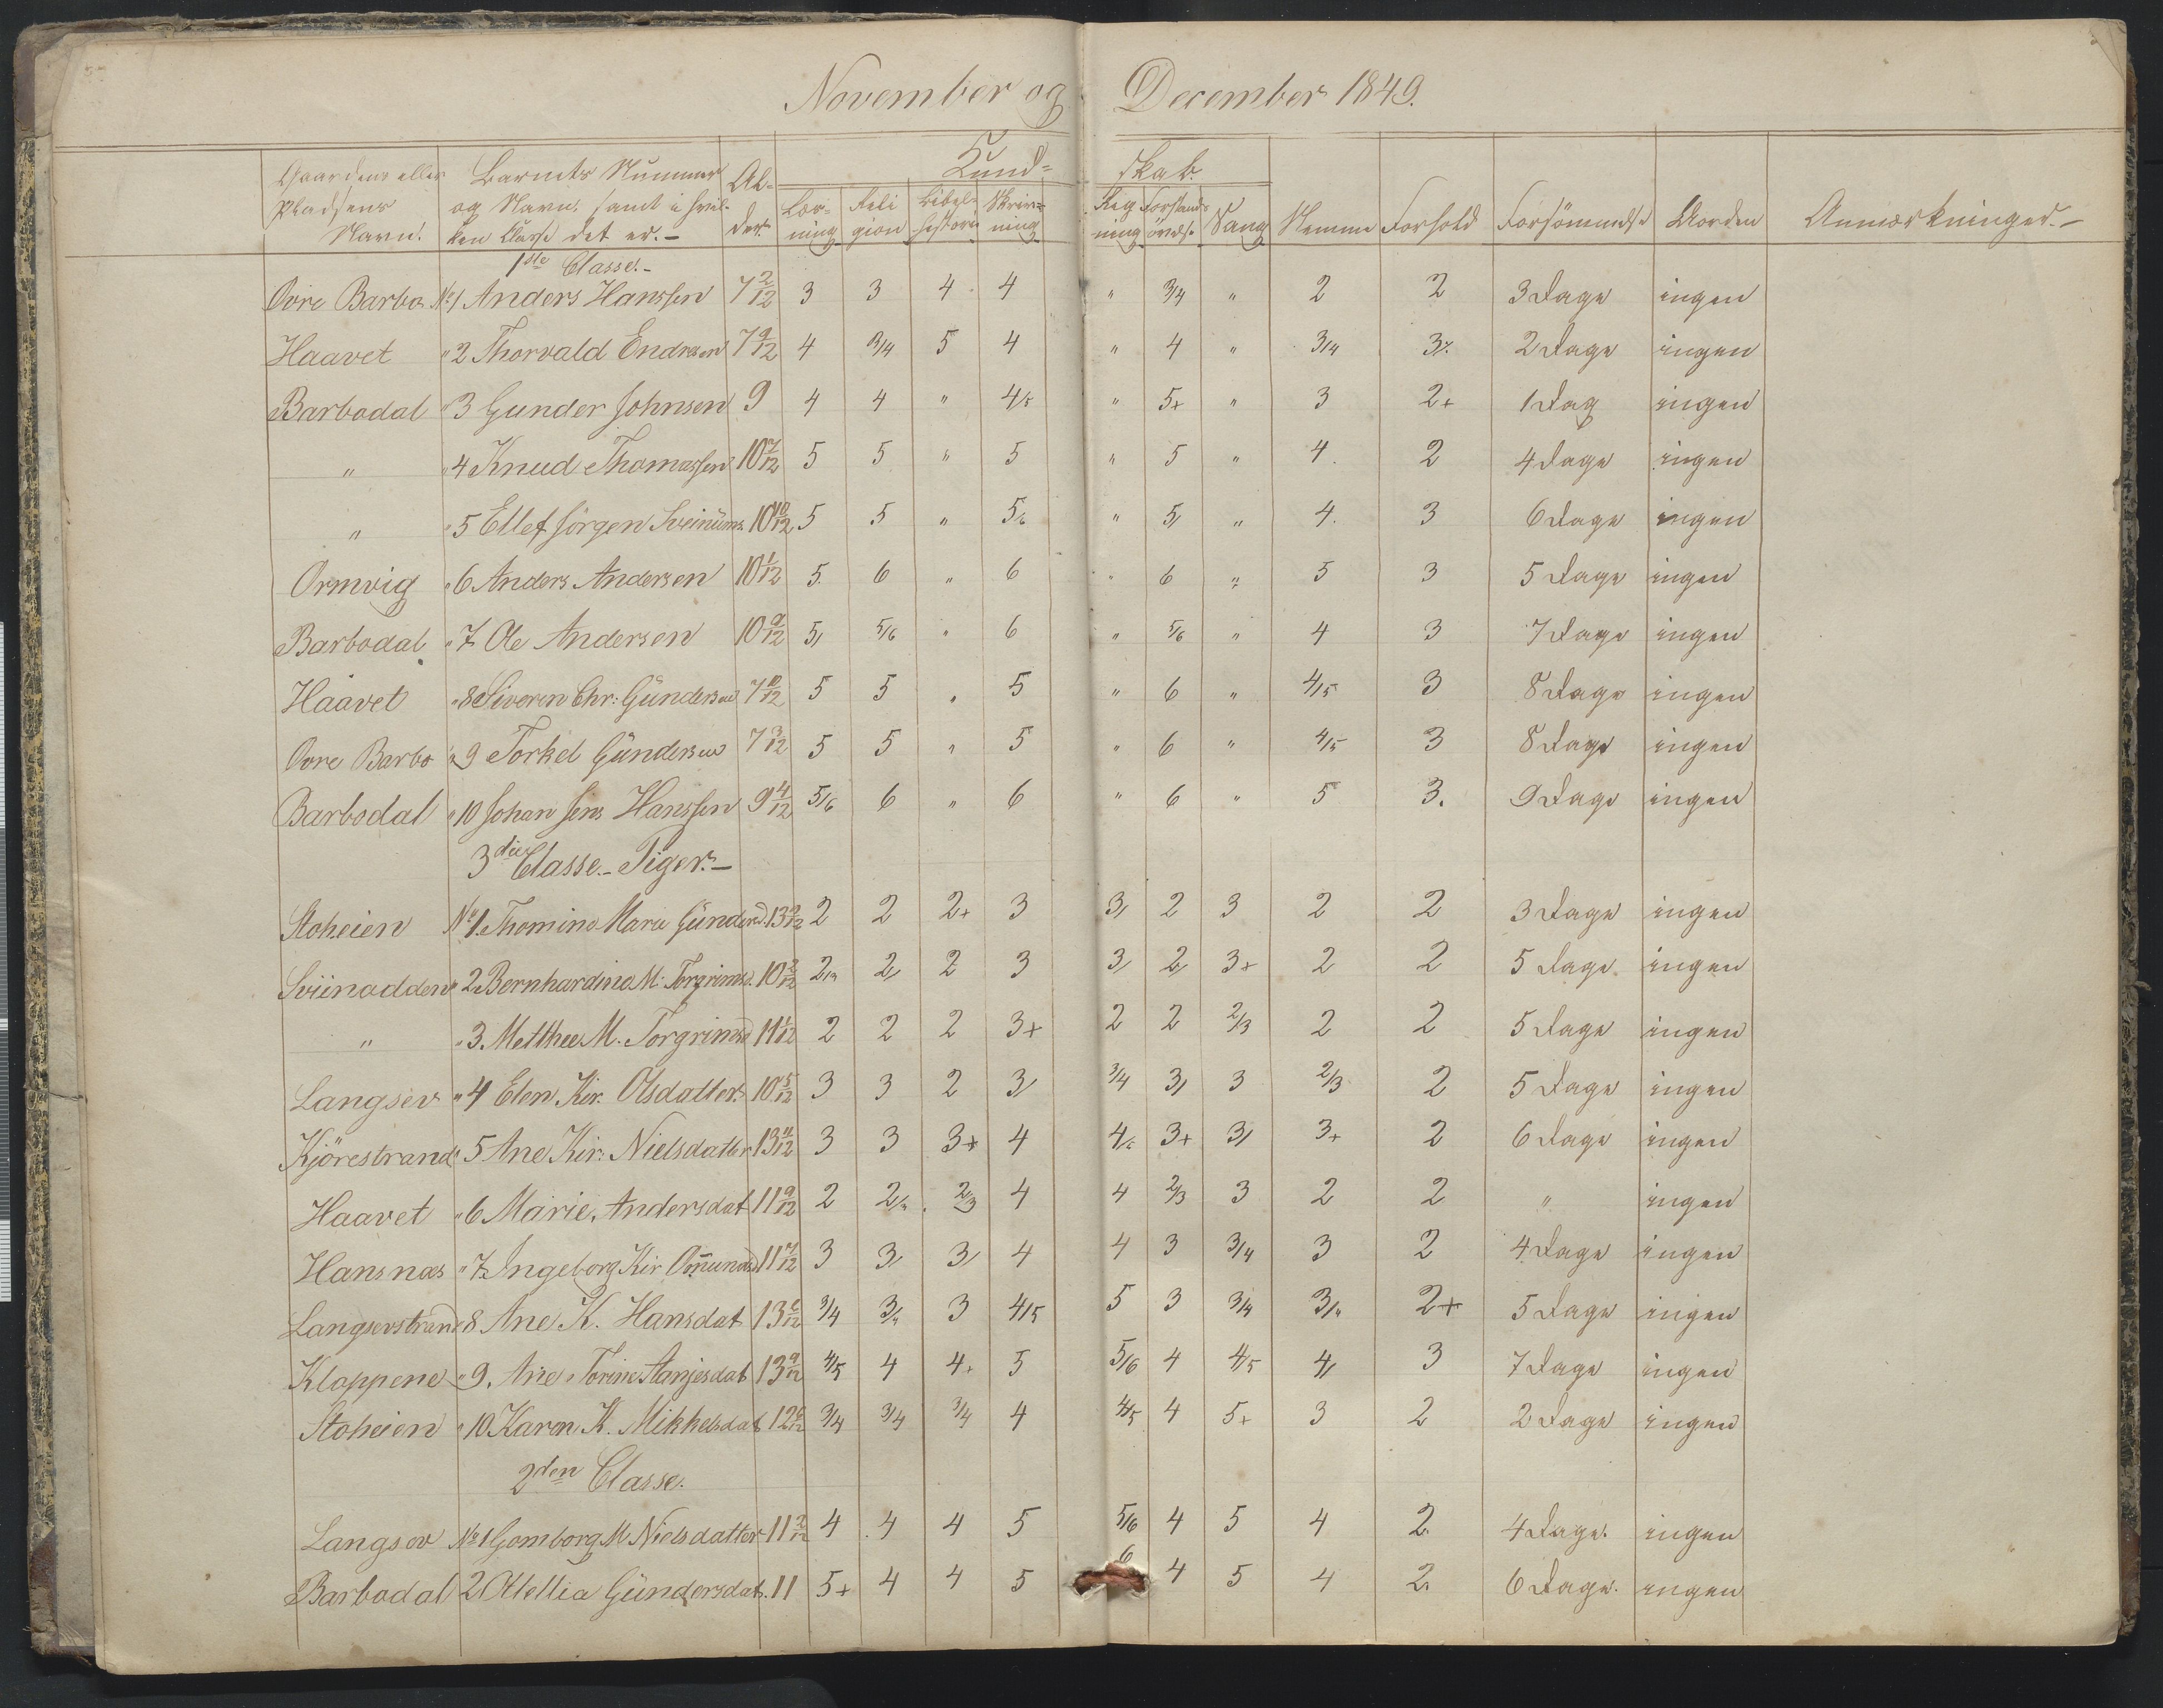 November og December 1849.
Gaardens eller Pladsens Navn. Barnets Nummer og Navn, samt i hvilken Classe det er. Alder. Kundskab. Nemme Forhold Forsömmelse Uorden Anmærkninger.
Læsning Religion Bibelhistorie Skrivning Regning Forstandsövelse Sang
1ste Classe.
Ovre Barbo No 1 Anders Hanssen 7 2/12 3 3 4 4 " 3/4 " 2 2 3 Dage ingen
Haavet " 2 Thorvald Endresen 7 9/12 4 3/4 5 4 " 4 " 3/4 3 2 Dage ingen
Barbodal " 3 Gunder Johnsen 9 4 4 " 4 " 5+ " 3 2+ 1 Dag ingen
" " 4 Knud Thomassen 10 7/12 5 5 " 5 " 5 " 4 2 4 Dage ingen
" " 5 Ellef Jörgen 10 10/12 5 5 " 5 " 5 " 4 3 6 Dage ingen
Ormvig " 6 Anders Andersen 10 1/12 5 6 " 6 " 6 " 5 3 5 Dage ingen
Barbodal " 7 Ole Andersen 10 9/12 5 5/6 " 6 " 5/6 " 4 3 7 Dage ingen
Haavet " 8 Siveren Chr: Gündersen 7 10/12 5 5 " 5 " 6 " 4/5 3 8 Dage ingen
Ovre Barbo " 9 Torkel Gündersen 7 3/12 5 5 " 5 " 6 " 4/5 3 8 Dage ingen
Barbodal " 10 Johan Jens Hanssen 9 4/12 5/6 6 " 6 " 6 " 5 3. 9 Dage ingen
3die Classe. Piger.
Stoheien No 1. Thomine Marie Günders 13 2 2 2+ 3 3 2 3 2 2 3 Dage ingen
Sviinodden " 2 Bernhardina M: Torgrimsd. 10 2/12 2 2 2 3 3 2 3+ 2 2 5 Dage ingen
" " 3. Metthee M. Torgrimsd 11 1/12 2 2 2 3+ 2 2 2/3 2 2 5 Dage ingen
Langsev " 4 Elen Kir. Olsdatter 10 5/12 3 3 2 3 3/4 3 3 2/3 2 5 Dage ingen
Kjörestrand " 5 Ane Kir: Nielsdatter 13 11/12 3 3 3+ 4 4 3+ 3 3+ 2 6 Dage ingen
Haavet " 6 Marie Andersdat 11 9/12 2 2 2/3 4 4 2/3 3 2 2 " ingen
Hansnæs " 7 Ingeborg Kir Omunds 11 7/12 3 3 3 4 4 3 3/4 3 2 4 Dage ingen
Langsevstrand 8 Ane K. Hansdat 13 3/4 3 3 4/5 5 3 3/4 3 2+ 5 Dage ingen
Kloppene " 9. Ane Torine Stanjesdat 13 9/12 4/5 4 4+ 5 5/6 4 4/5 4 3 7 Dage ingen
Stoheien " 10 Karen K. Mikkelsdat 12 3/4 3/4 3/4 4 4/5 4 5+ 3 2 2 Dage ingen
2den Classe.
Langsev No 1 Gomborg M Nielsdatter 11 2/12 4 4 4 5 5/6 4 5 4 2 4 Dage. ingen
Barbodal 2 Ottellia Gündersdat. 11 5+ 4 4 5 6 4 5 4 2 6 Dage. ingen